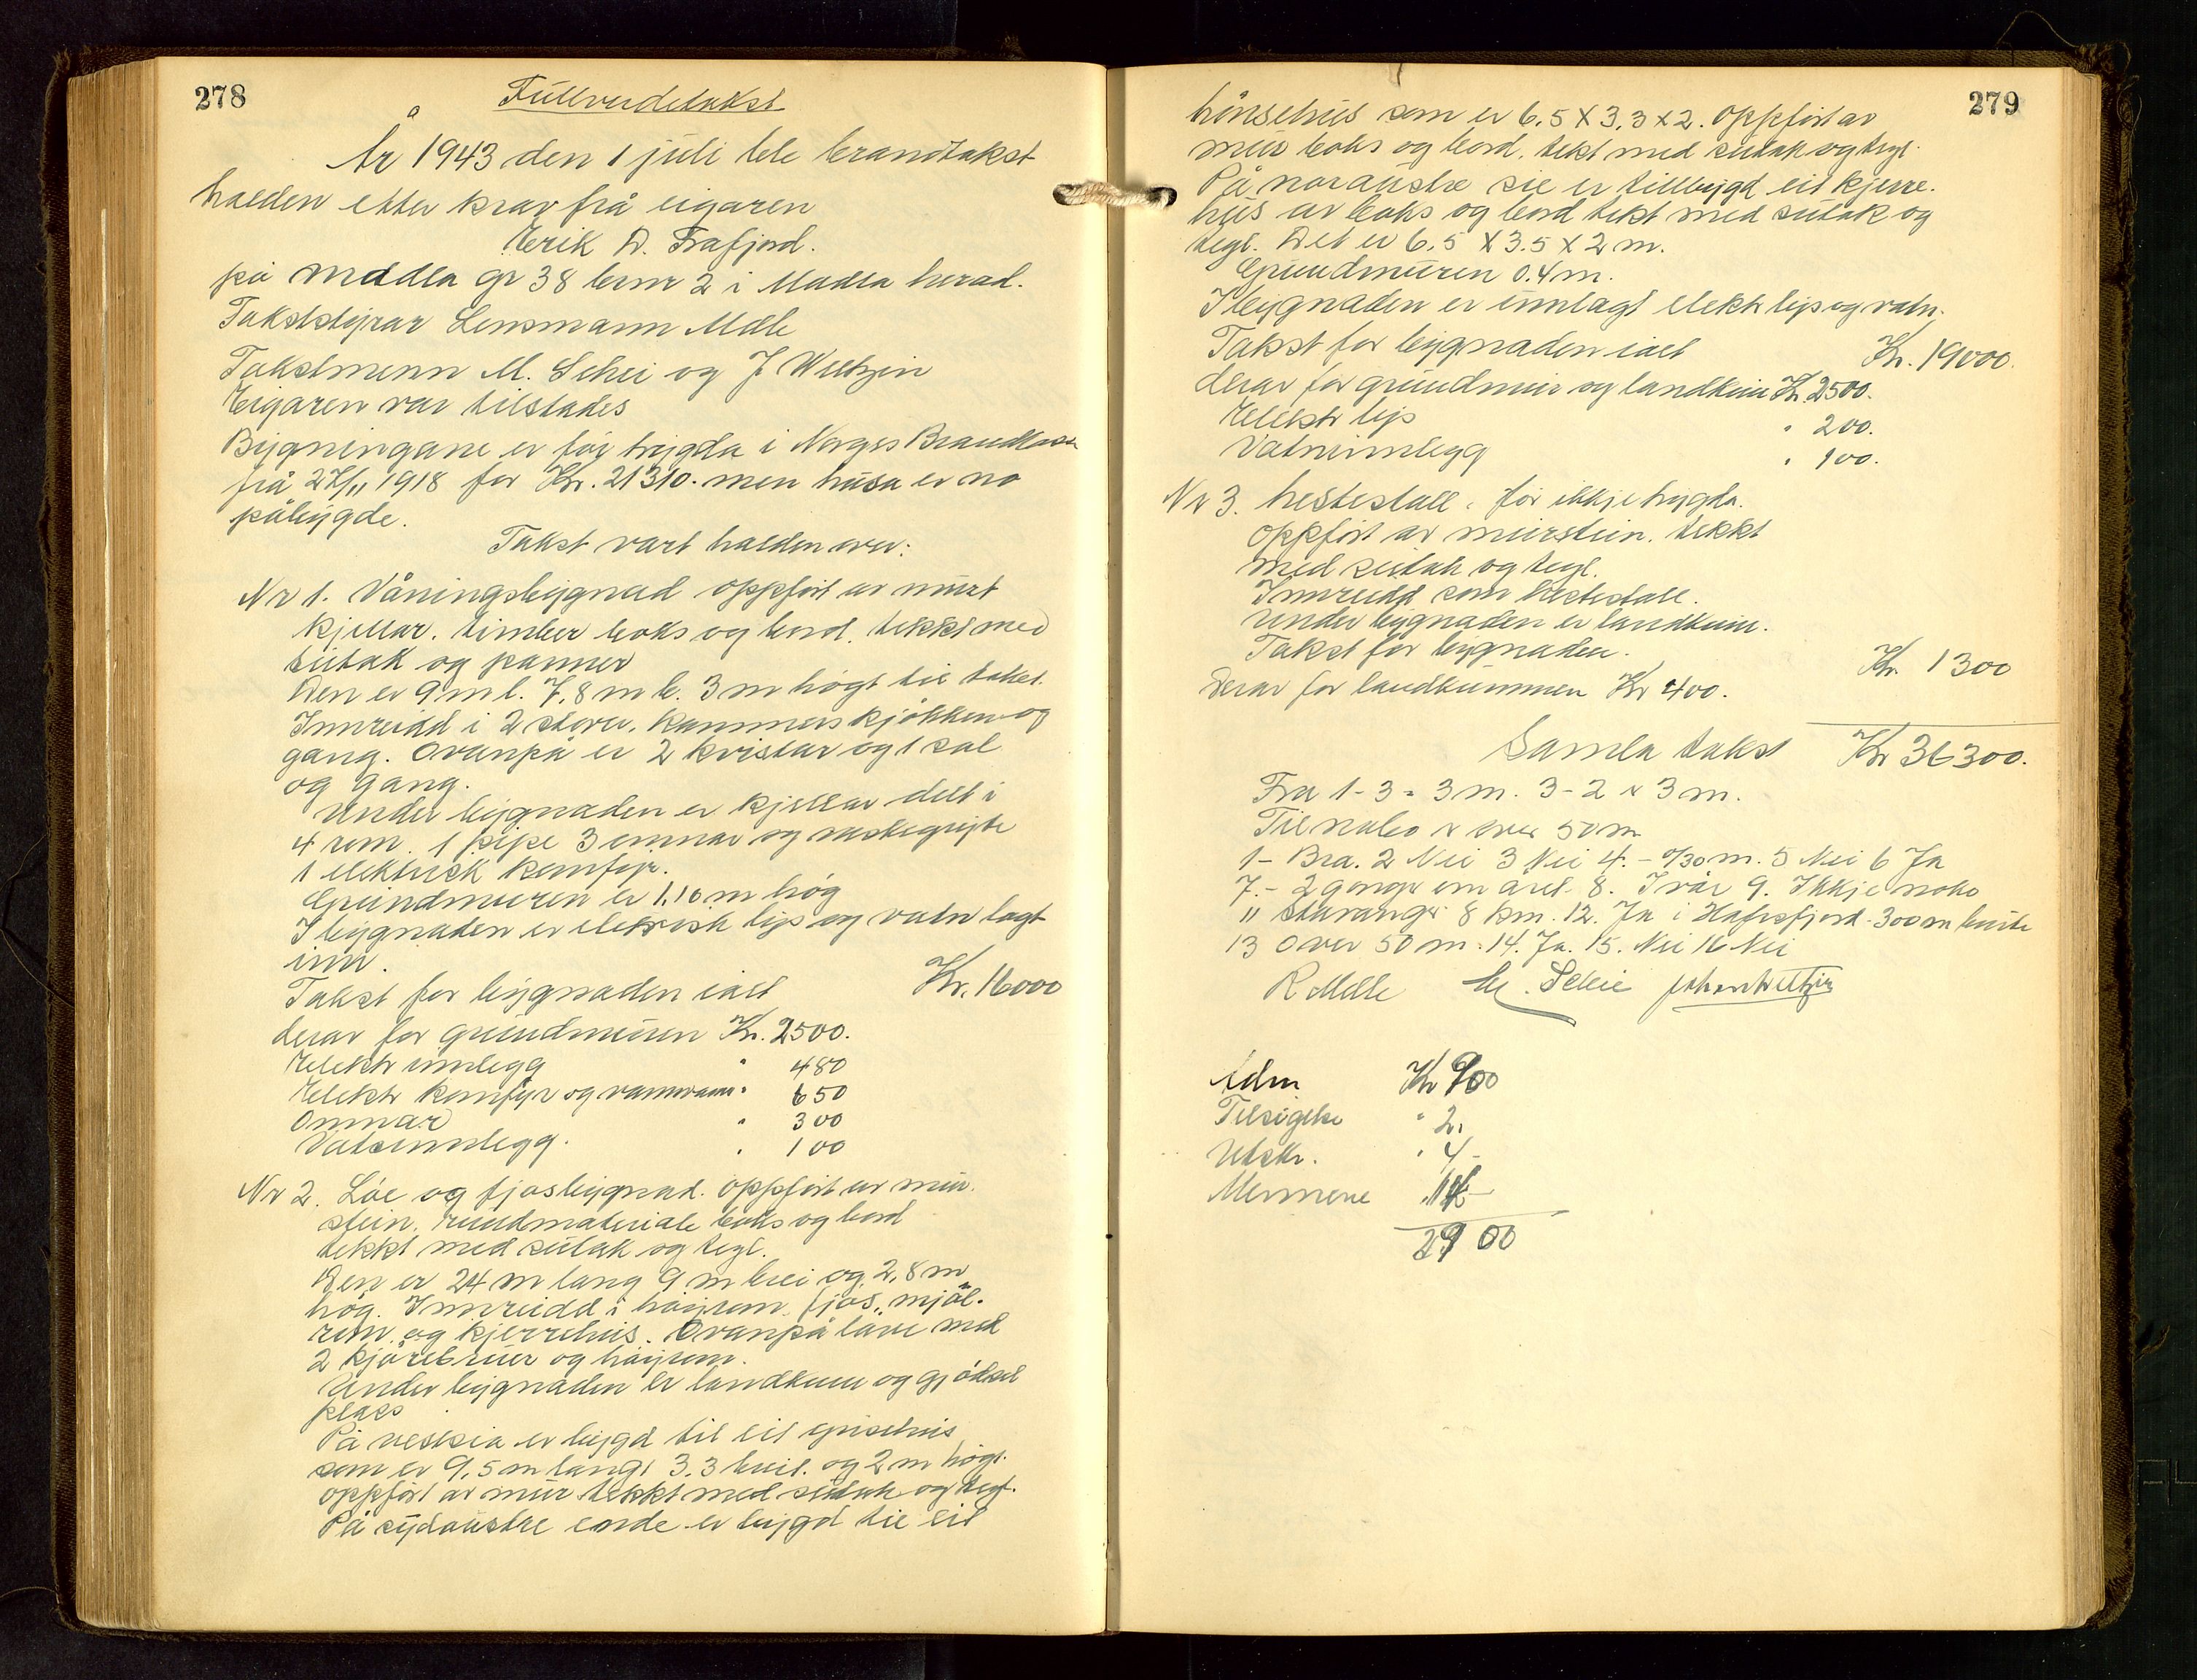 278
Fullverdetakst
År 1943 den 1 juli ble brandtakst
halden etter krav frå eigaren
Erik D. Frafjord.
på Madla gr 38 brnr 2 i Madla herad.
Takststyrar Lensmann Mæle
Takstmenn M. Schei og J. Weltzin
Eigaren var tilstades
Bygningane er før trygda i Norges Brandkasse
frå 27/11 1918 for Kr. 21310. men husa er no
påbygde.
Takst vart halden over:
Nr 1. Våningsbygnad oppført av murt
kjellar. timber boks og bord. tekkt med
sutak og panner
Den er 9 m l. 7,8 m b. 3 m høgt til taket.
Innreidd i 2 stover. kammers kjøkken og
gang. Ovanpå er 2 kvistar og 1 sal
og gang.
Under bygnaden er kjellar delt i
4 rom. 1 pipe 3 omnar og vaskegryte
1 elektrisk komfyr.
Grundmuren er 1,10 m høg
I bygnaden er elektrisk lys og vatn lagt
inn.
Takst for bygnaden ialt Kr. 16000
derav for grundmuren Kr. 2500.
Elektr innlegg " 480
Elektr komfyr og " 650
Omnar " 300
Vatsinnlegg. " 100
Nr 2. Løe og fjosbygnad. oppført av mur-
stein. rundmateriale boks og bord
tekkt med sutak og tegl.
Den er 24 m lang 9 m brei og 2,8 m
høg. Innreidd i høyrom. fjos, mjøl-
rom og kjerrehus. Ovanpå låve med
2 kjørebruer og høyrom.
Under bygnaden er landkum og gjødsel
plass
På vestsia er bygd til eit grisehus
som er 9,5 m langt 3.3 breit. og 2 m høgt.
oppført av mur tekkt med sutak og tegl.
På sydaustre ende er bygd til eit
279
hønsehus som er 6,5 X 3,3 x 2. Oppført av
mur boks og bord. tekt med sutak og tegl.
På noraustre sie er tilbygd eit kjerre-
hus av boks og bord tekt med sutak og
tegl. Det er 6,5 X 3.5 X 2 m.
Grundmuren 0.4 m.
I bygnaden er innlagt elektr lys og vatn.
Takst for bygnaden ialt Kr. 19000.
derav for grundmur og landkum Kr. 2500.
Elektr lys " 200.
Vatninnlegg " 100.
Nr 3. hestestall. før ikkje trygda.
Oppført av murstein. tekkt
med sutak og tegl.
Innreidd som hestestall.
Under bygnaden er landkum.
Takst for bygnaden. Kr 1300
derav for landkummen Kr 400.
Samla takst Kr 36300.
Fra 1-3 = 3 m. 3-2 x 3 m.
Til nabo x over 50 m
1- Bra. 2 Nei 3 Nei 4.- 0/30 m. 5 Nei 6 Ja
7.- 2 gonger om året 8. I vår 9. Ikkje noko
11 Stavanger 8 km. 12. Ja i Hafrsfjord. 300 m borte
13 Over 50 m. 14. Ja. 15. Nei 16 Nei
R Mæle M. Schei Johan Weltzin
Adm Kr 900
Tilsigelse " 2.
Utskr. " 4-
Mennene " 14-
29 00